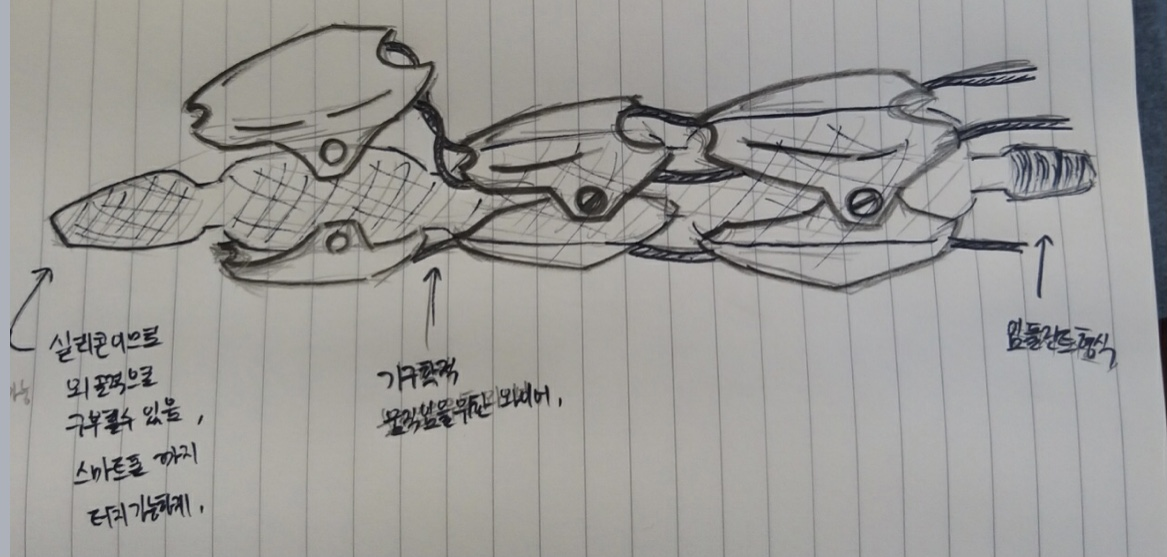 실리콘이므로
외골격으로
구부릴수 있음,
스마트폰 까지
터치가능하게.
기구학적
움직임을위한 와이어.
임플란트형식